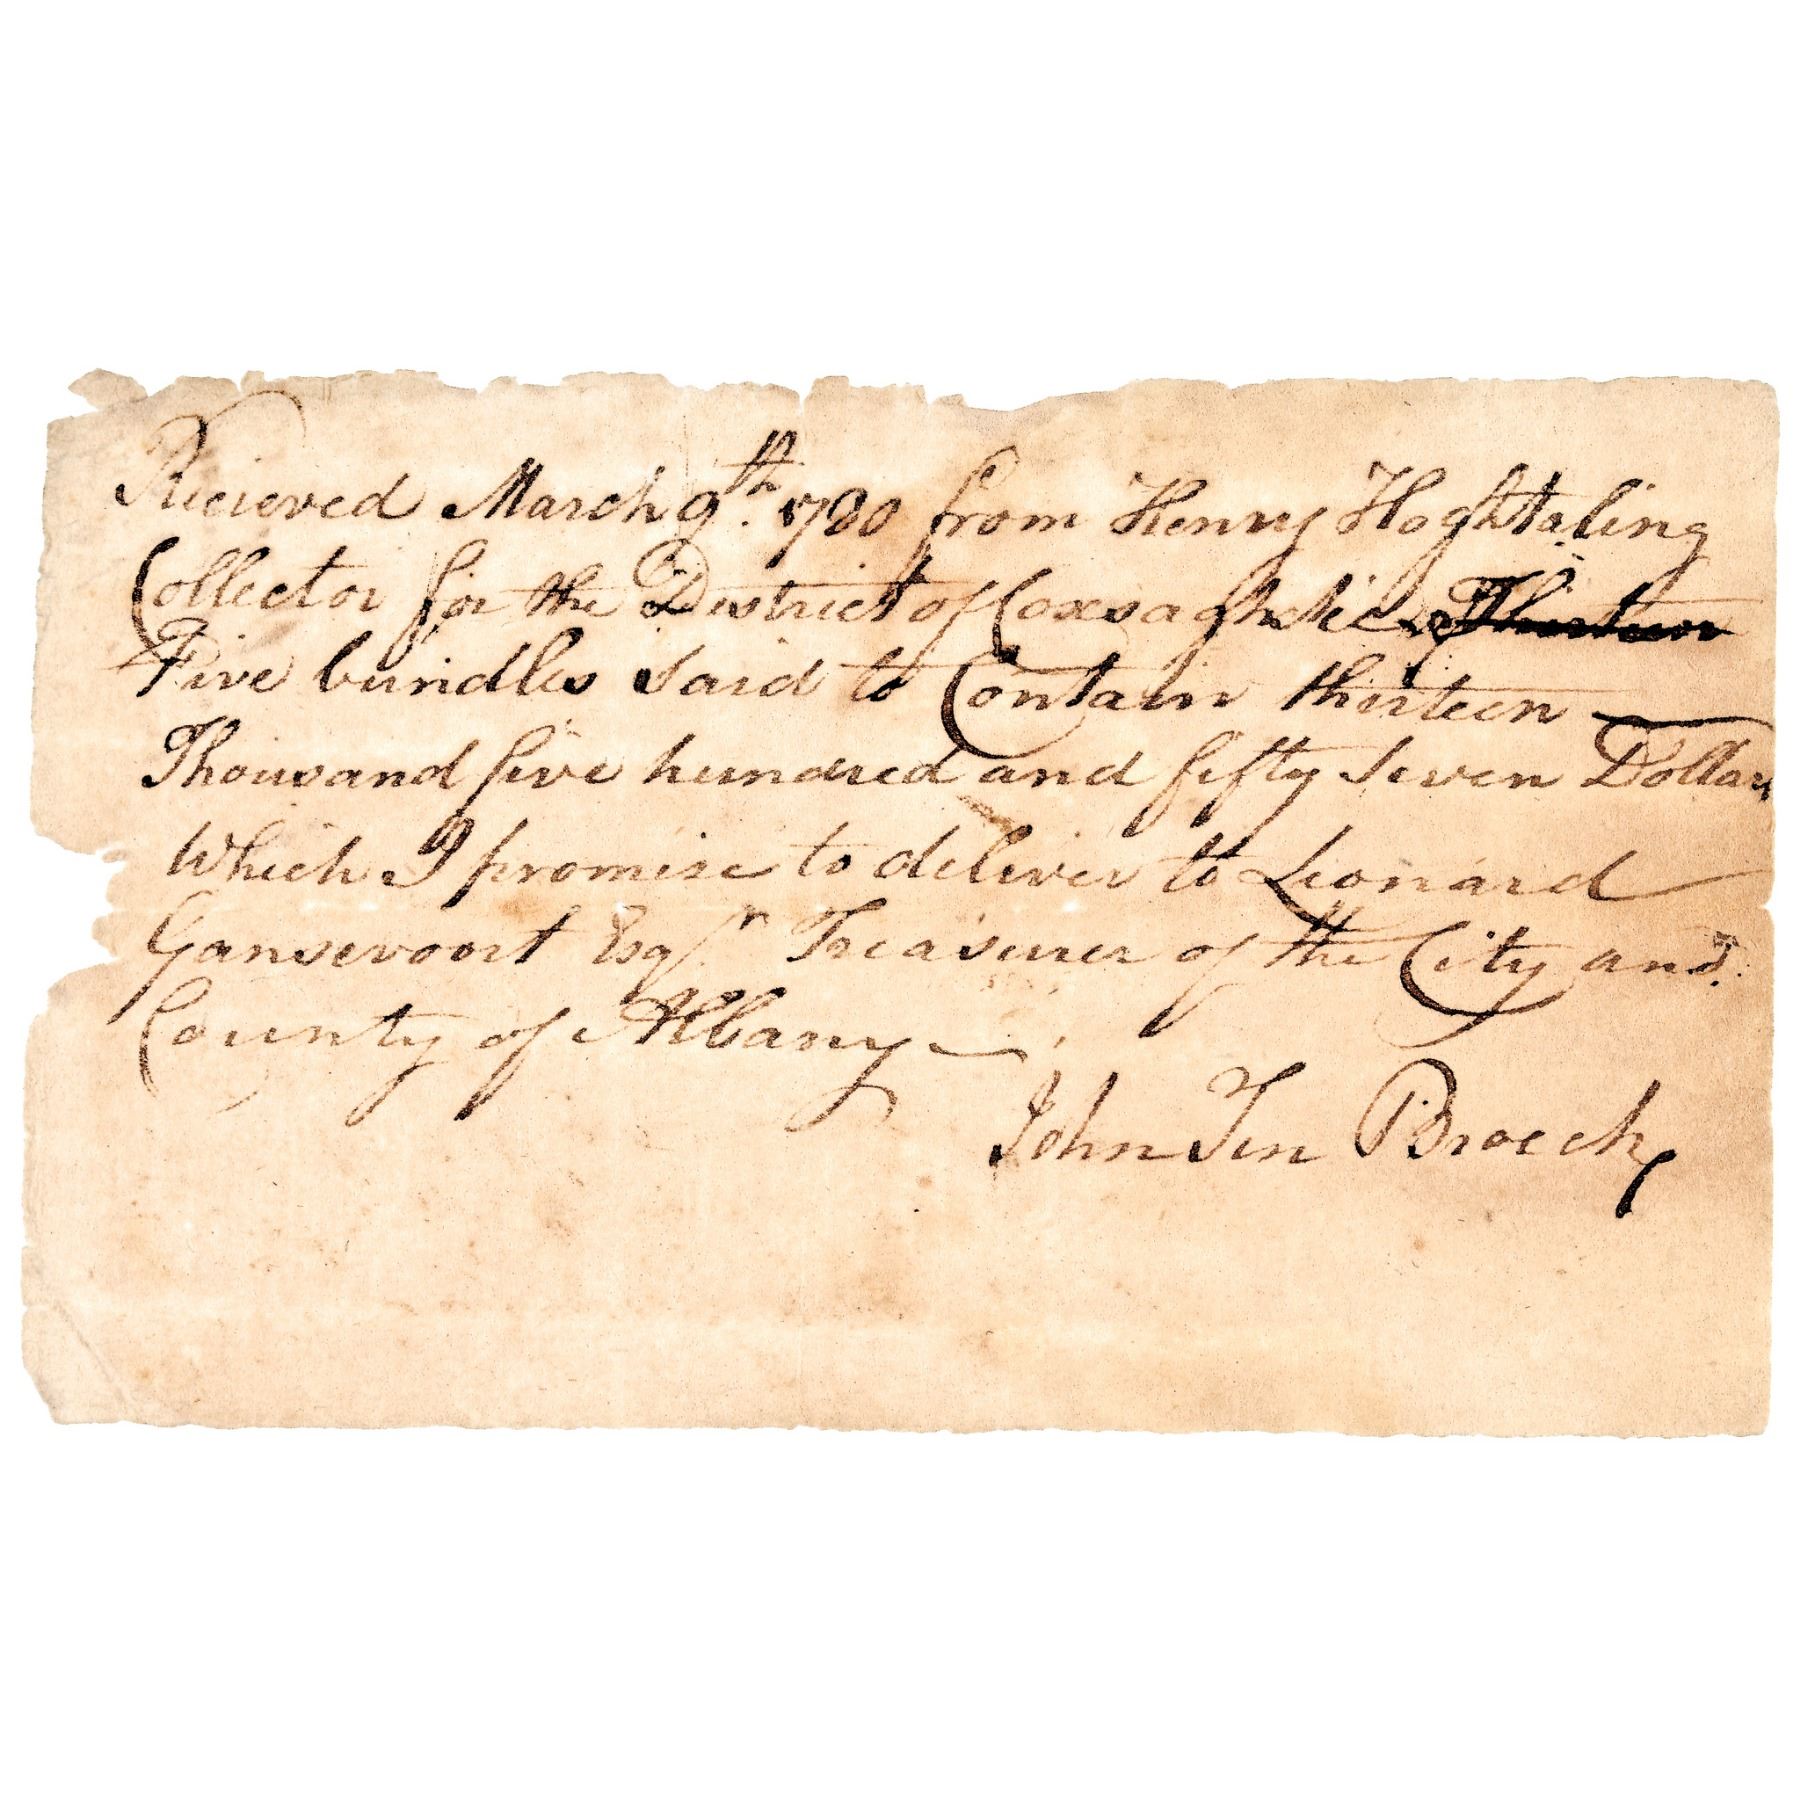 Recieved March 9th. 1780 from Henry Hoghtaling
Collector for the District of Coxsaghkie Thirteen
Five bundles Said to Contain thirteen
Thousand five hundred and fifty Seven Dollars
Which I promise to deliver to Leonard
Gansevoort Esqr. Treasurer of the City and
County of Albany
John Ten Broeck